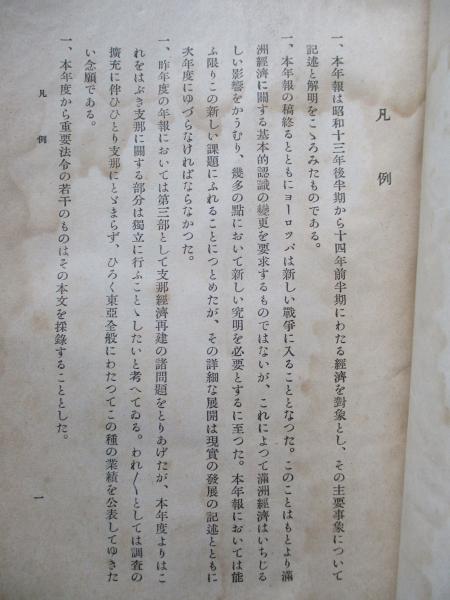 凡例
一、本年報は昭和十三年後半期から十四年前半期にわたる經濟を對象とし、その主要事象について
記述と解明をこゝろみたものである。
一、本年報の稿終るとともにヨーロッパは新しい戰爭に入ることとなつた。このことはもとより滿
洲經濟に關する基本的認識の變更を要求するものではないが、これによつて滿洲經濟はいちじる
しい影響をかうむり、幾多の點において新しい究明を必要とするに至つた。本年報においては能
ふ限りこの新しい課題にふれることにつとめたが、その詳細な展開は現實の發展の記述とともに
次年度にゆづらなければならなかつた。
一、昨年度の年報においては第三部として支那經濟再建の諸問題をとりあげたが、本年度よりはこ
れをはぶき支那に關する部分は獨立に行ふことゝしたいと考へてゐる。われ〳〵としては調査の
擴充に伴ひひとり支那にとゞまらず、ひろく東亞全般にわたつてこの種の業績を公表してゆきた
い念願である。
一、本年度から重要法令の若干のものはその本文を採錄することとした。
凡例
一